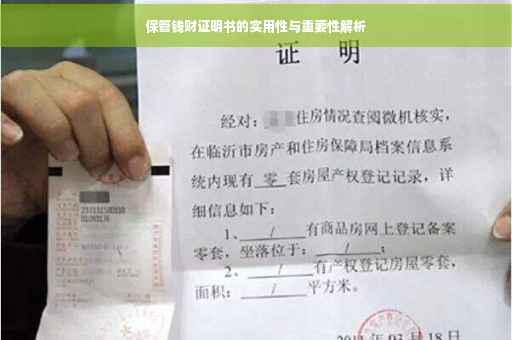 保管钱财证明书的实用性与重要性解析
证 明
经对：住房情况查阅微机核实，
在临沂市房产和住房保障局档案信息系
统内现有 零 套房屋产权登记记录，详
细信息如下：
1、 / 有商品房网上登记备案
零套，坐落位于： / ；
2、 / 有产权登记房屋零套，
面积： / 平方米。
月 18 日